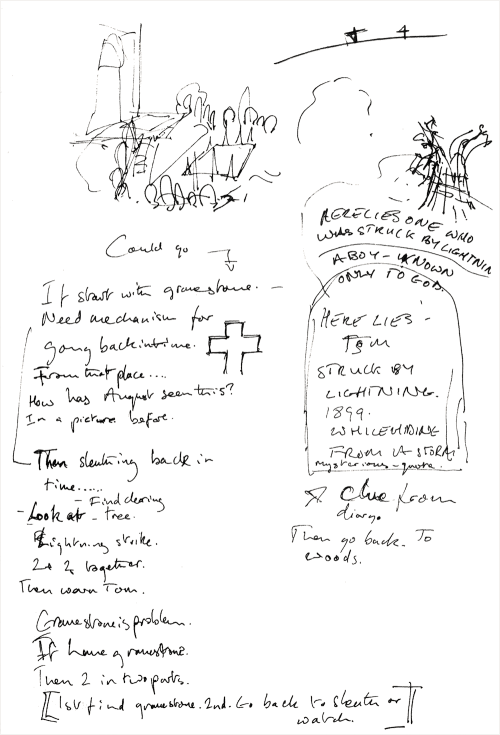 4
Could go
If start with gravestone. -
Need mechanism for
going back in time.
From that place....
How has August seen this?
In a picture before.
Then sleuthing back in
time......
- Find clearing
- Look at - tree.
Lightning strike.
2 + 2 together.
Then warn Tom.
Gravestone is problem.
If have gravestone.
Then 2 in two parts.
[1st find gravestone. 2nd. Go back to sleuth or
watch.]
HERE LIES ONE WHO
WAS STRUCK BY LIGHTNIN
A BOY - KNOWN
ONLY TO GOD.
HERE LIES -
TOM
STRUCK BY
LIGHTNING.
1899.
WHILE HIDING
FROM A STORM
mysterious - quote.
Clue from
diary.
Then go back. To
woods.